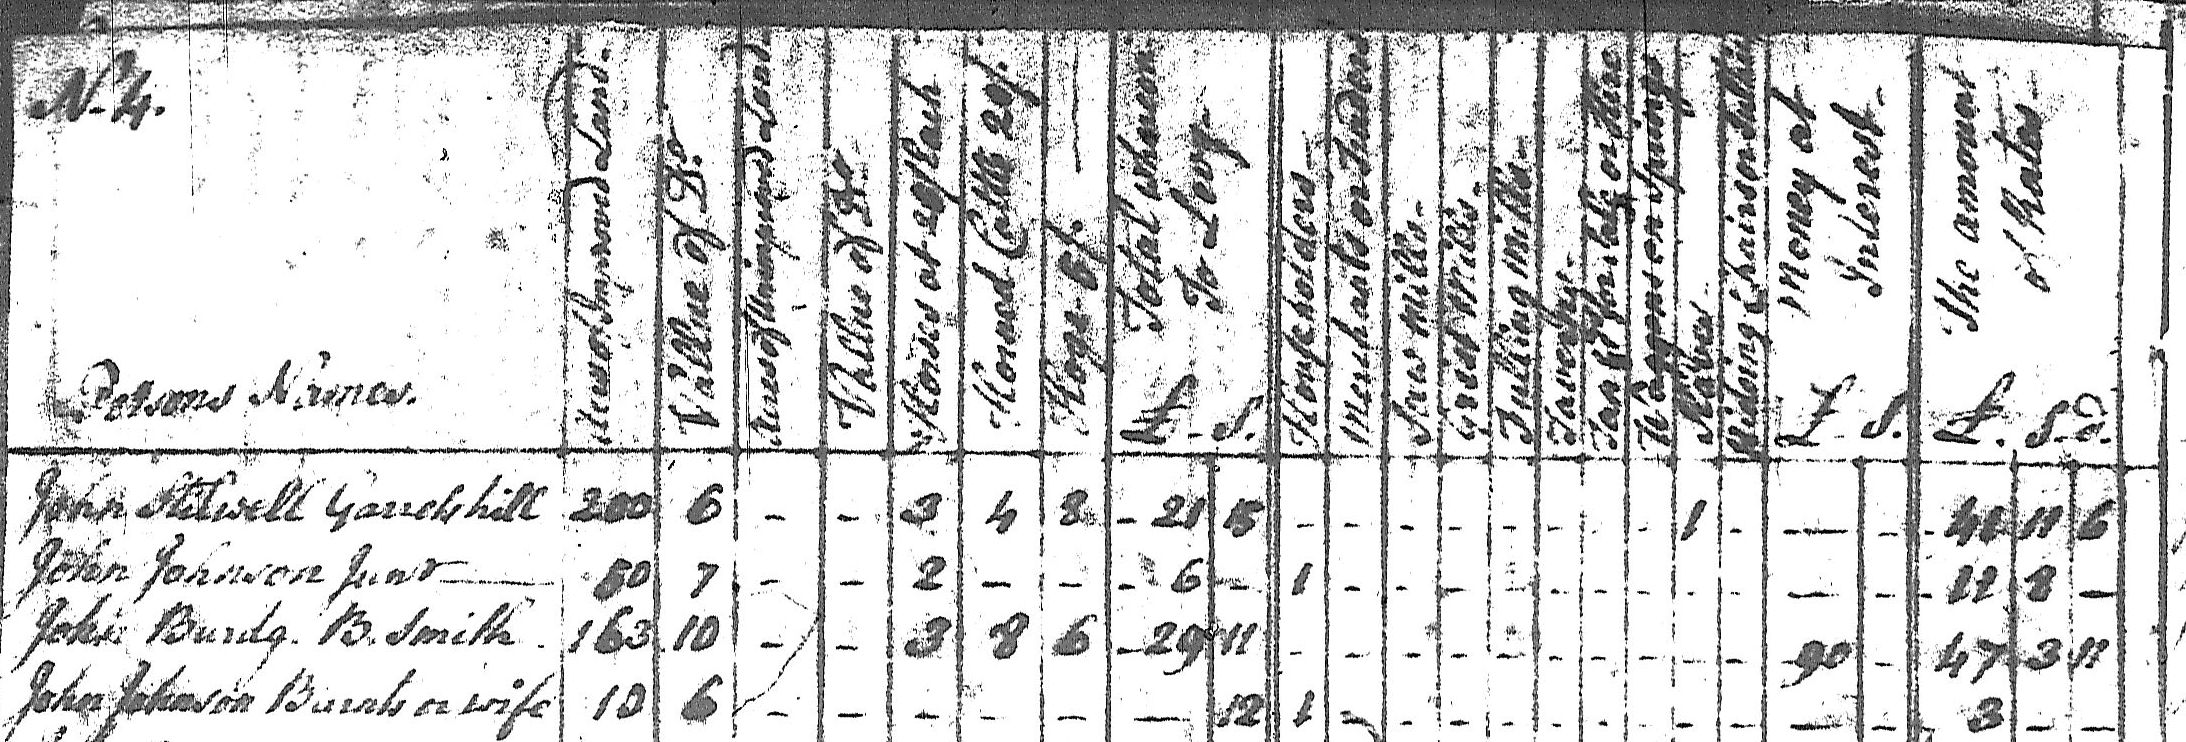 N. 4.
Persons Names.
Acres of Improved Land.
Vallue of Do.
Acres of Unimproved Land
Vallue of Do.
Horses at 20/ Each
Horned Cattle 20/.
Hogs 6/.
Total whereon To Levy
£ S.
Householders
Merchants or Traders
Saw Mills.
Grist Mills.
Fulling Mills.
Taverns.
Waggons on Springs
Slaves.
Riding Chairs or Sulkies
Money at Interest.
£ S.
The amount of Rates.
£. S. D.
John Stilwell 200 6 - - 3 4 8 - 21 15 - - - - - - - - 1 - — - 11 6
John Johnson Junr — 50 7 - - 2 - - - 6 - 1 - - - - - - - - - — - 8 —
John Burdg. B. Smith 163 10 - - 3 8 6 - 29 11 - - - - - - - - - - 90 - 47 3 11
John Johnson or wife 10 6 - - - - - — 12 1 - - - - - - - - - — - 3 - —